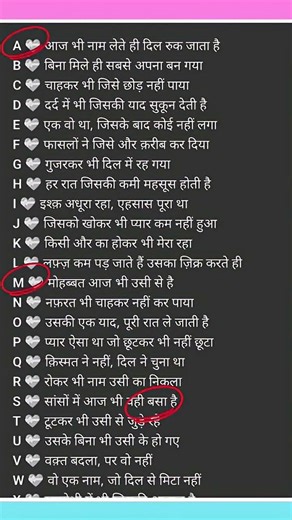 A 🩶 आज भी नाम लेते ही दिल रुक जाता है
B 🩶 बिना मिले ही सबसे अपना बन गया
C 🩶 चाहकर भी जिसे छोड़ नहीं पाया
D 🩶 दर्द में भी जिसकी याद सुकून देती है
E 🩶 एक वो था, जिसके बाद कोई नहीं लगा
F 🩶 फासलों ने जिसे और क़रीब कर दिया
G 🩶 गुजरकर भी दिल में रह गया
H 🩶 हर रात जिसकी कमी महसूस होती है
I 🩶 इश्क़ अधूरा रहा, एहसास पूरा था
J 🩶 जिसको खोकर भी प्यार कम नहीं हुआ
K 🩶 किसी और का होकर भी मेरा रहा
L 🩶 लफ़्ज़ कम पड़ जाते हैं उसका ज़िक्र करते ही
M 🩶 मोहब्बत आज भी उसी से है
N 🩶 नफ़रत भी चाहकर नहीं कर पाया
O 🩶 उसकी एक याद, पूरी रात ले जाती है
P 🩶 प्यार ऐसा था जो छूटकर भी नहीं छूटा
Q 🩶 क़िस्मत ने नहीं, दिल ने चुना था
R 🩶 रोकर भी नाम उसी का निकला
S 🩶 सांसों में आज भी वही बसा है
T 🩶 टूटकर भी उसी से जुड़े रहे
U 🩶 उसके बिना भी उसी के हो गए
V 🩶 वक़्त बदला, पर वो नहीं
W 🩶 वो एक नाम, जो दिल से मिटा नहीं